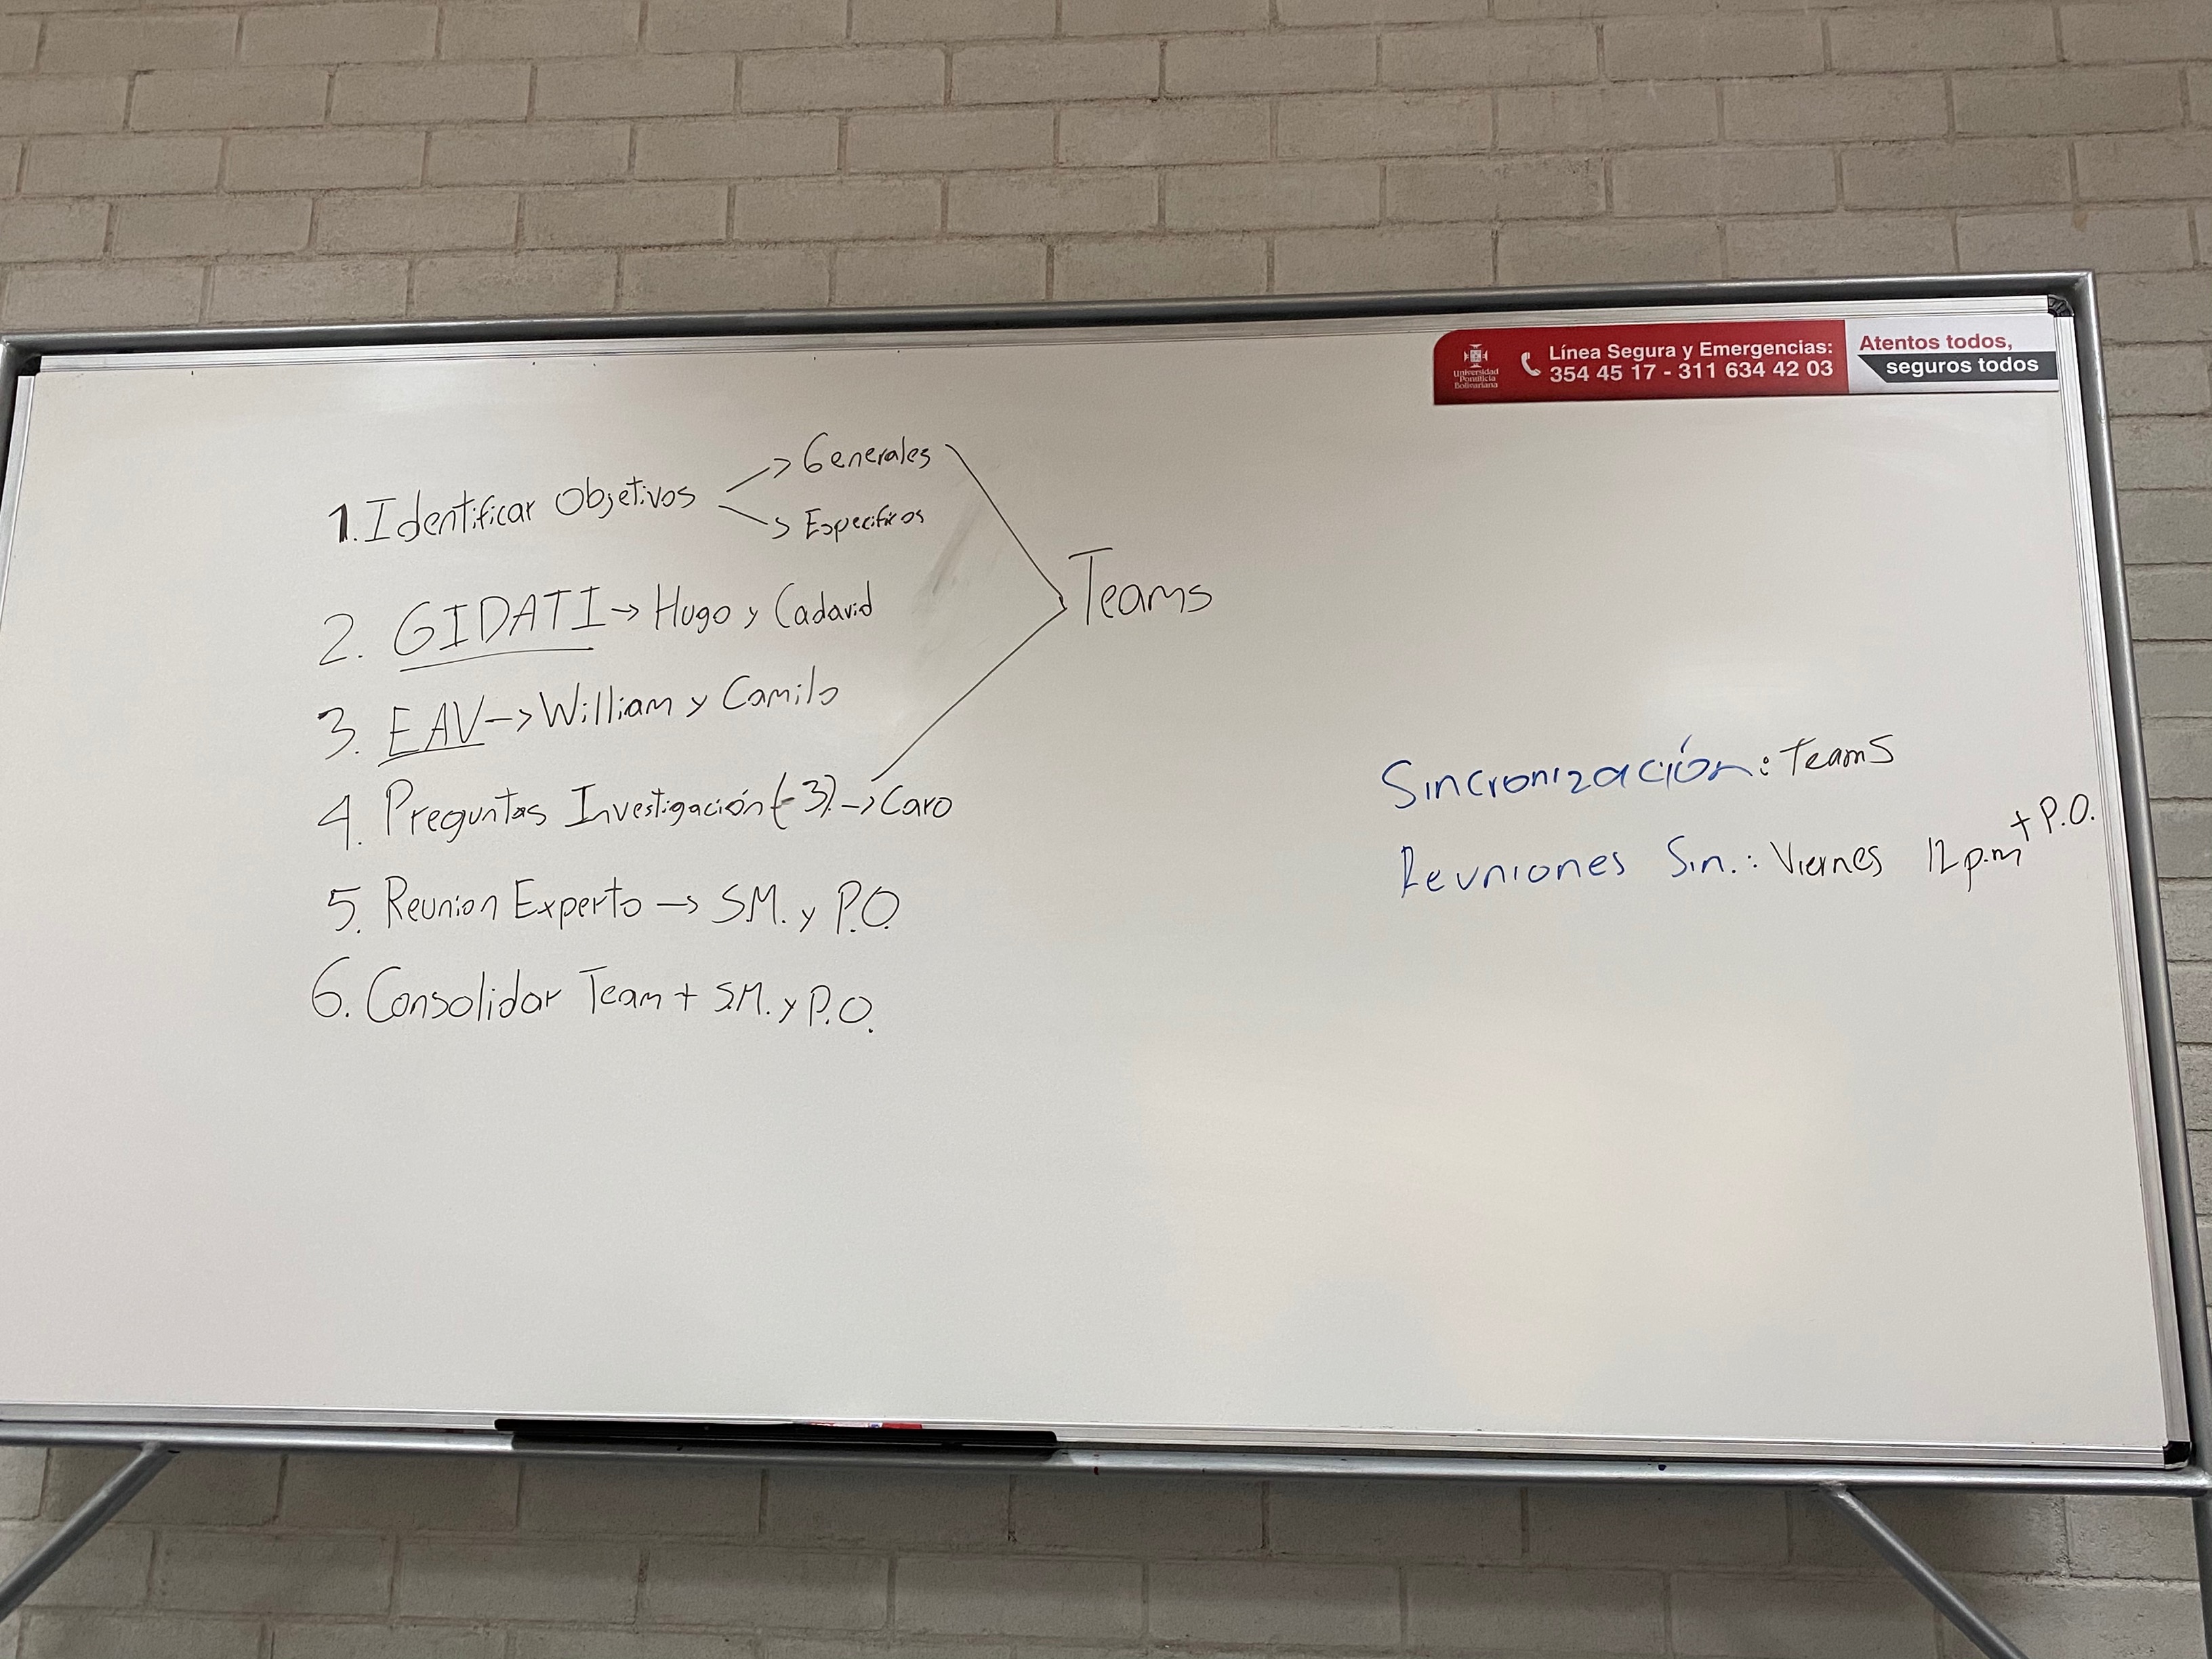 Universidad
Pontificia
Bolivariana
Línea Segura y Emergencias:
354 45 17 - 311 634 42 03
Atentos todos,
seguros todos
1. Identificar Objetivos -> Generales
-> Especificos
Teams
2. GIDATI -> Hugo y Cadavid
3. EAV -> William y Camilo
4. Preguntas Investigación (-3) -> Caro
5. Reunion Experto -> S.M. y P.O.
6. Consolidar Team + S.M. y P.O.
Sincronización: Teams
Reuniones Sin.: Viernes 12 p.m + P.O.